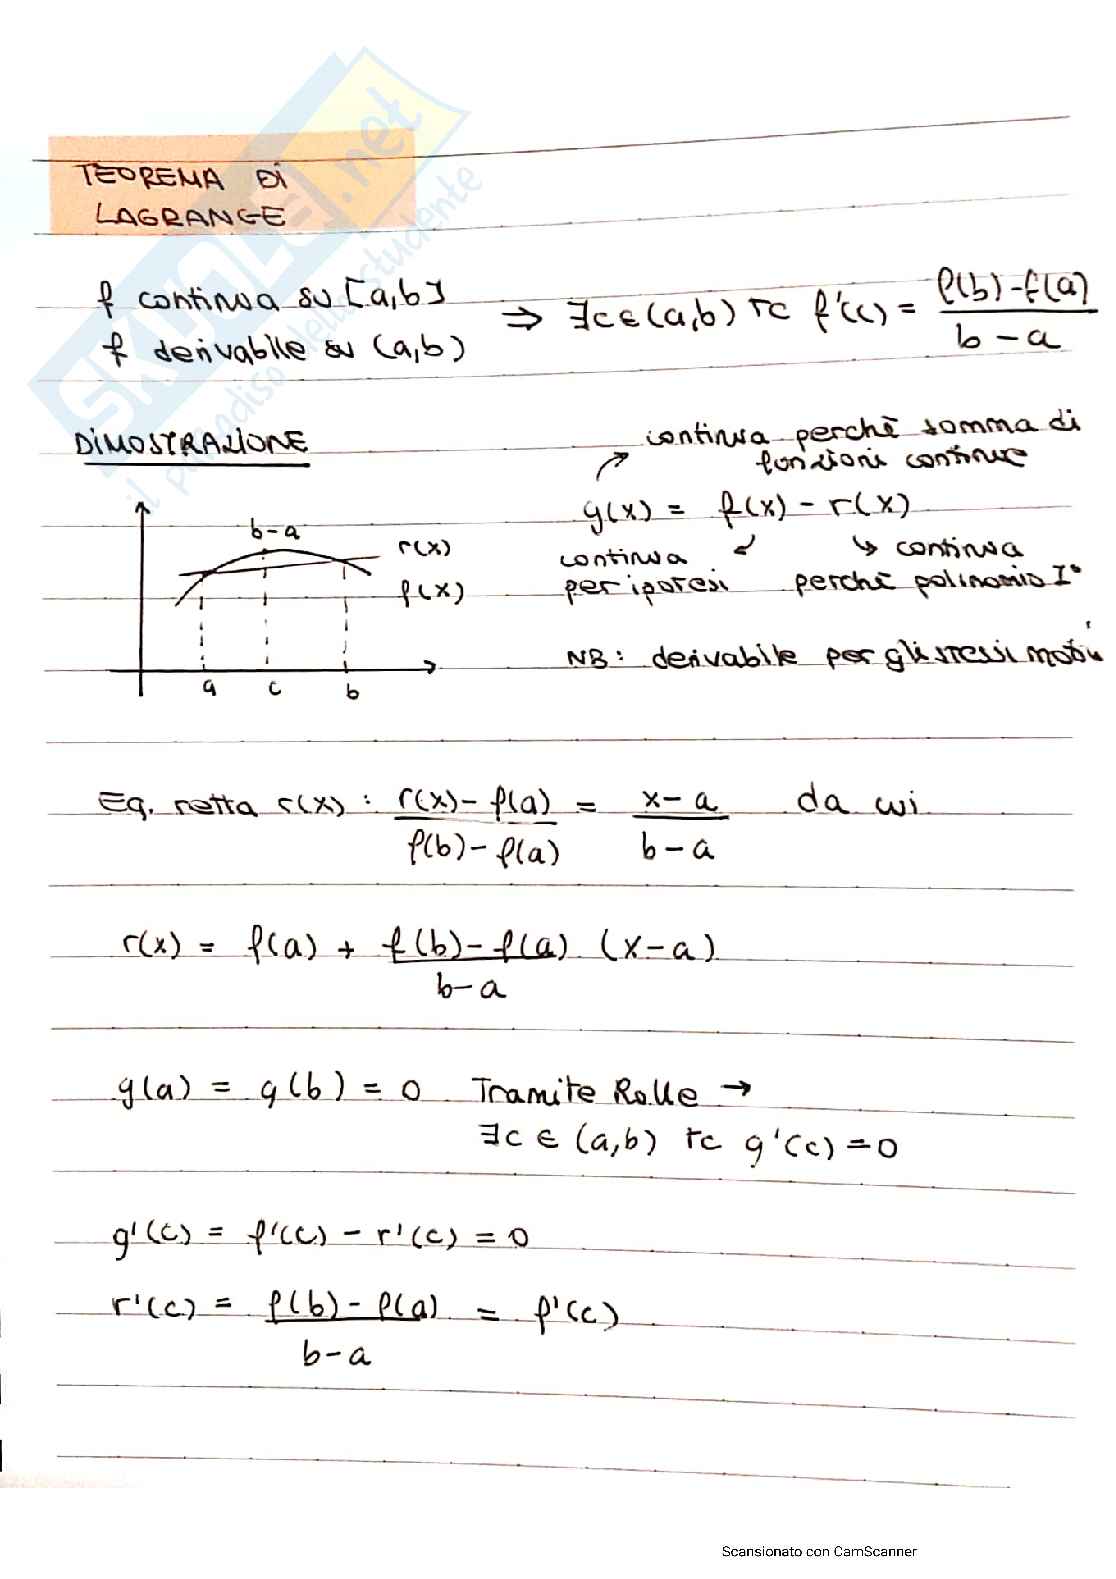 TEOREMA DI
LAGRANGE
f continua su [a,b]
f derivabile su (a,b)
⇒ ∃c∈(a,b) tc f'(c) = f(b)-f(a)
b-a
DIMOSTRAZIONE
continua perchè somma di
funzioni continue
g(x) = f(x) - r(x)
continua
per ipotesi
↪ continua
perchè polinomio I°
NB: derivabile per gli stessi motivi
b-a
r(x)
f(x)
a c b
Eq. retta r(x) : r(x)-f(a) = x-a da cui
f(b)-f(a) b-a
r(x) = f(a) + f(b)-f(a) (x-a)
b-a
g(a) = g(b) = 0 Tramite Rolle →
∃c ∈ (a,b) tc g'(c) = 0
g'(c) = f'(c) - r'(c) = 0
r'(c) = f(b)-f(a) = f'(c)
b-a
SKUOLA.net
il paradiso dello studente
Scansionato con CamScanner